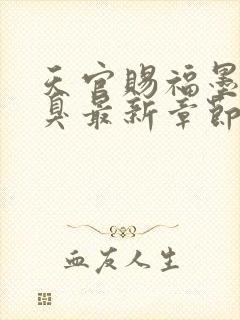 天官赐福墨
臭最新章節
血友人生